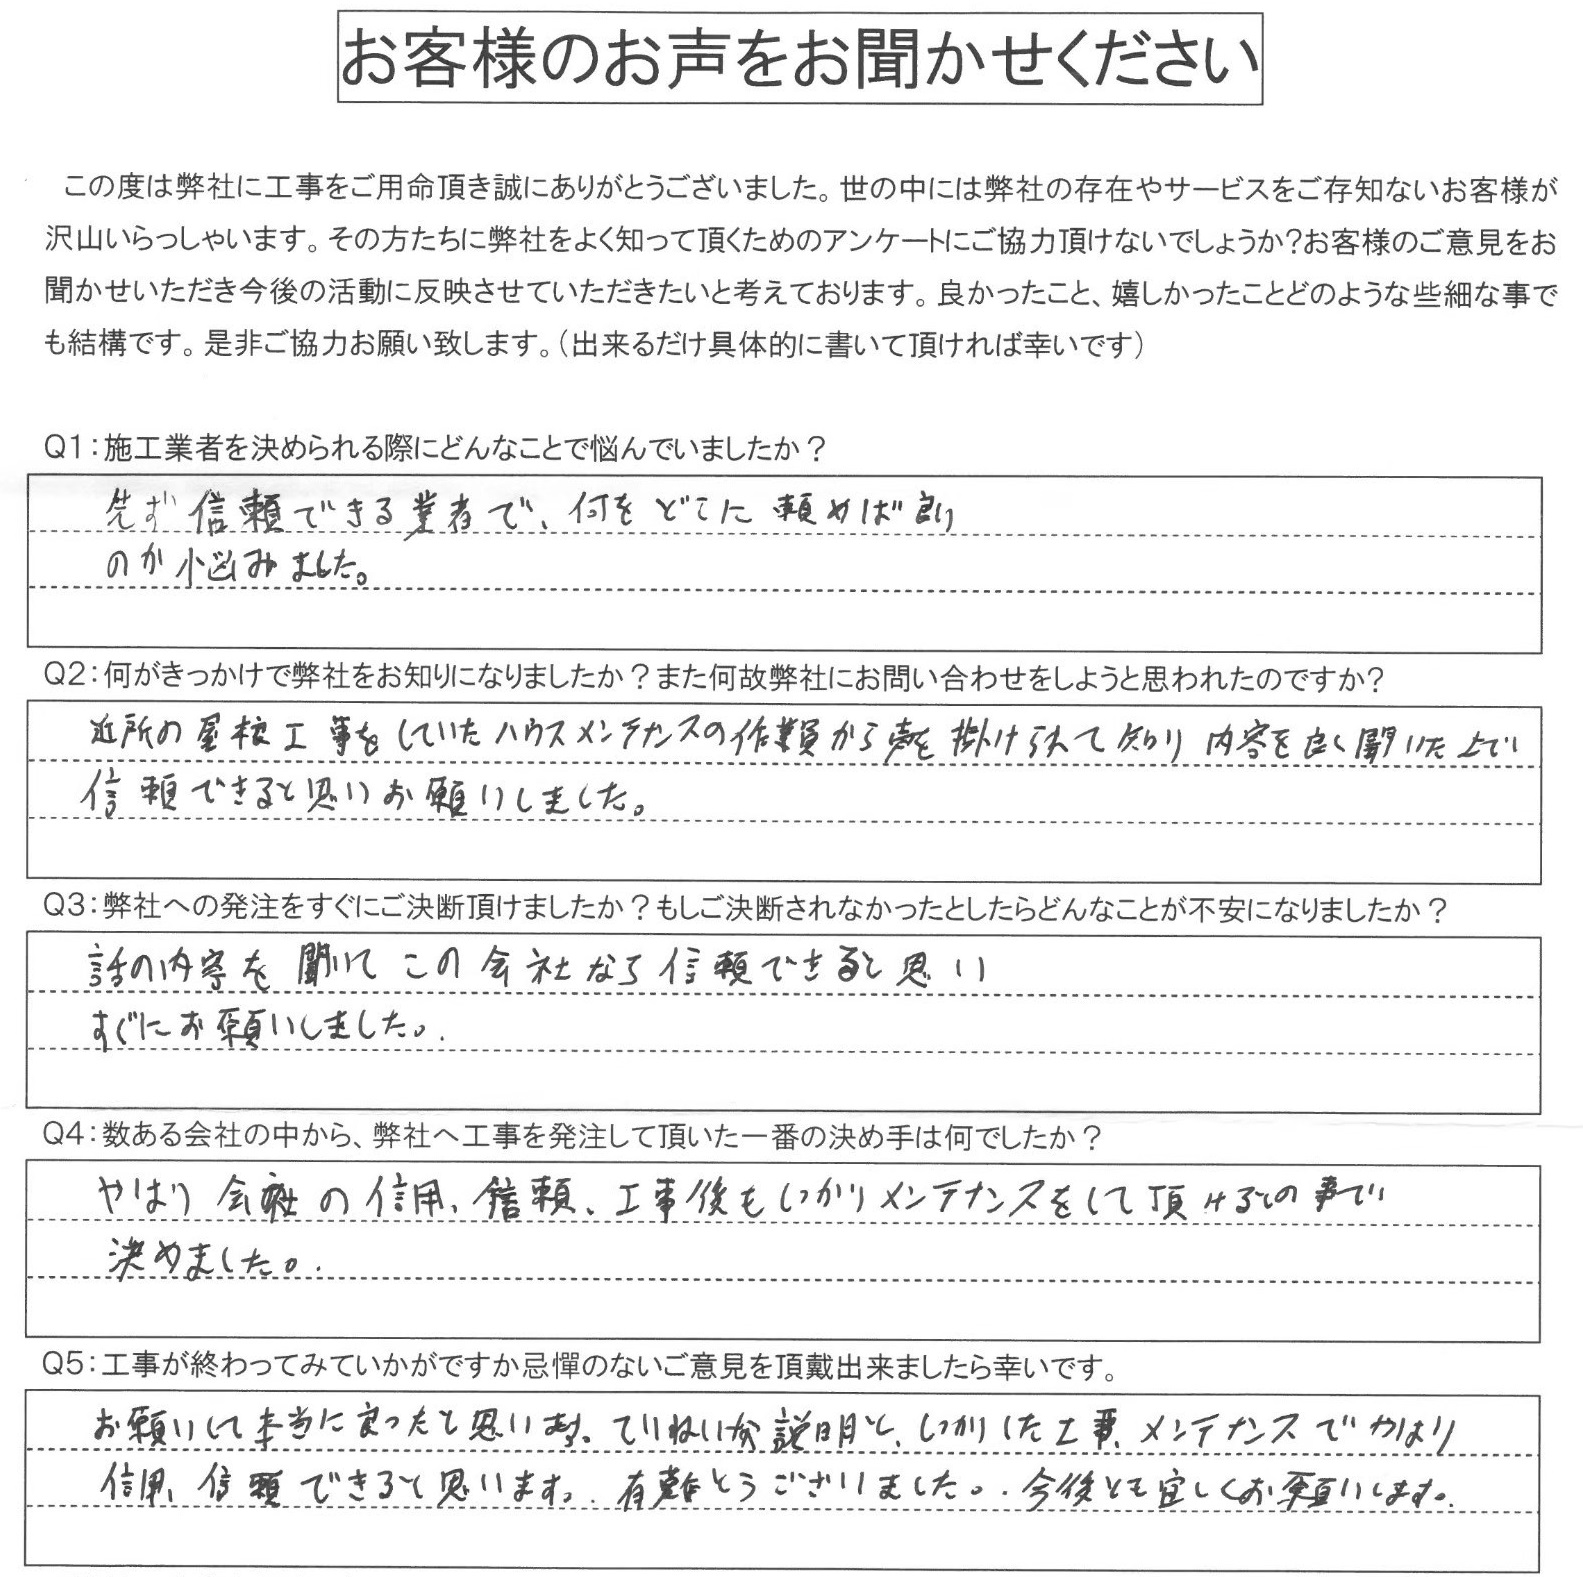 お客様のお声をお聞かせください
この度は弊社に工事をご用命頂き誠にありがとうございました。世の中には弊社の存在やサービスをご存知ないお客様が
沢山いらっしゃいます。その方たちに弊社をよく知って頂くためのアンケートにご協力頂けないでしょうか?お客様のご意見をお
聞かせいただき今後の活動に反映させていただきたいと考えております。良かったこと、嬉しかったことどのような些細な事で
も結構です。是非ご協力お願い致します。（出来るだけ具体的に書いて頂ければ幸いです）
Q1：施工業者を決められる際にどんなことで悩んでいましたか？
先ず信頼できる業者で、何をどこに頼めば良い
のか悩みました。
Q2：何がきっかけで弊社をお知りになりましたか？また何故弊社にお問い合わせをしようと思われたのですか?
近所の屋根工事をしていたハウスメンテナンスの作業員から声を掛けられて知り内容を良く聞いた上で
信頼できると思いお願いしました。
Q3：弊社への発注をすぐにご決断頂けましたか？もしご決断されなかったとしたらどんなことが不安になりましたか？
話の内容を聞いてこの会社なら信頼できると思い
すぐにお願いしました。
Q4：数ある会社の中から、弊社へ工事を発注して頂いた一番の決め手は何でしたか？
やはり会社の信用、信頼、工事後もしっかりメンテナンスをして頂けるとの事で
決めました。
Q5：工事が終わってみていかがですか忌憚のないご意見を頂戴出来ましたら幸いです。
お願いして本当に良ったと思います。ていねいな説明と、しっかりした工事、メンテナンスでやはり
信用、信頼できると思います。有難とうございました。今後とも宜しくお願いします。